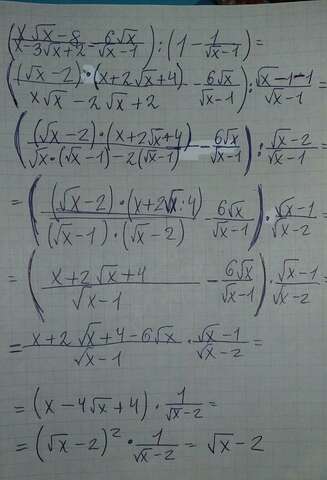 (x√x-8/x-3√x+2 - 6√x/√x-1) : (1 - 1/√x-1) =
((√x-2)·(x+2√x+4)/x√x-2√x+2 - 6√x/√x-1) : √x-1-1/√x-1 =
((√x-2)·(x+2√x+4)/√x·(√x-1)-2(√x-1) - 6√x/√x-1) : √x-2/√x-1 =
= ((√x-2)·(x+2√x+4)/(√x-1)·(√x-2) - 6√x/√x-1) · √x-1/√x-2 =
= (x+2√x+4/√x-1 - 6√x/√x-1) · √x-1/√x-2 =
= x+2√x+4-6√x/√x-1 · √x-1/√x-2 =
= (x-4√x+4) · 1/√x-2 =
= (√x-2)² · 1/√x-2 = √x-2